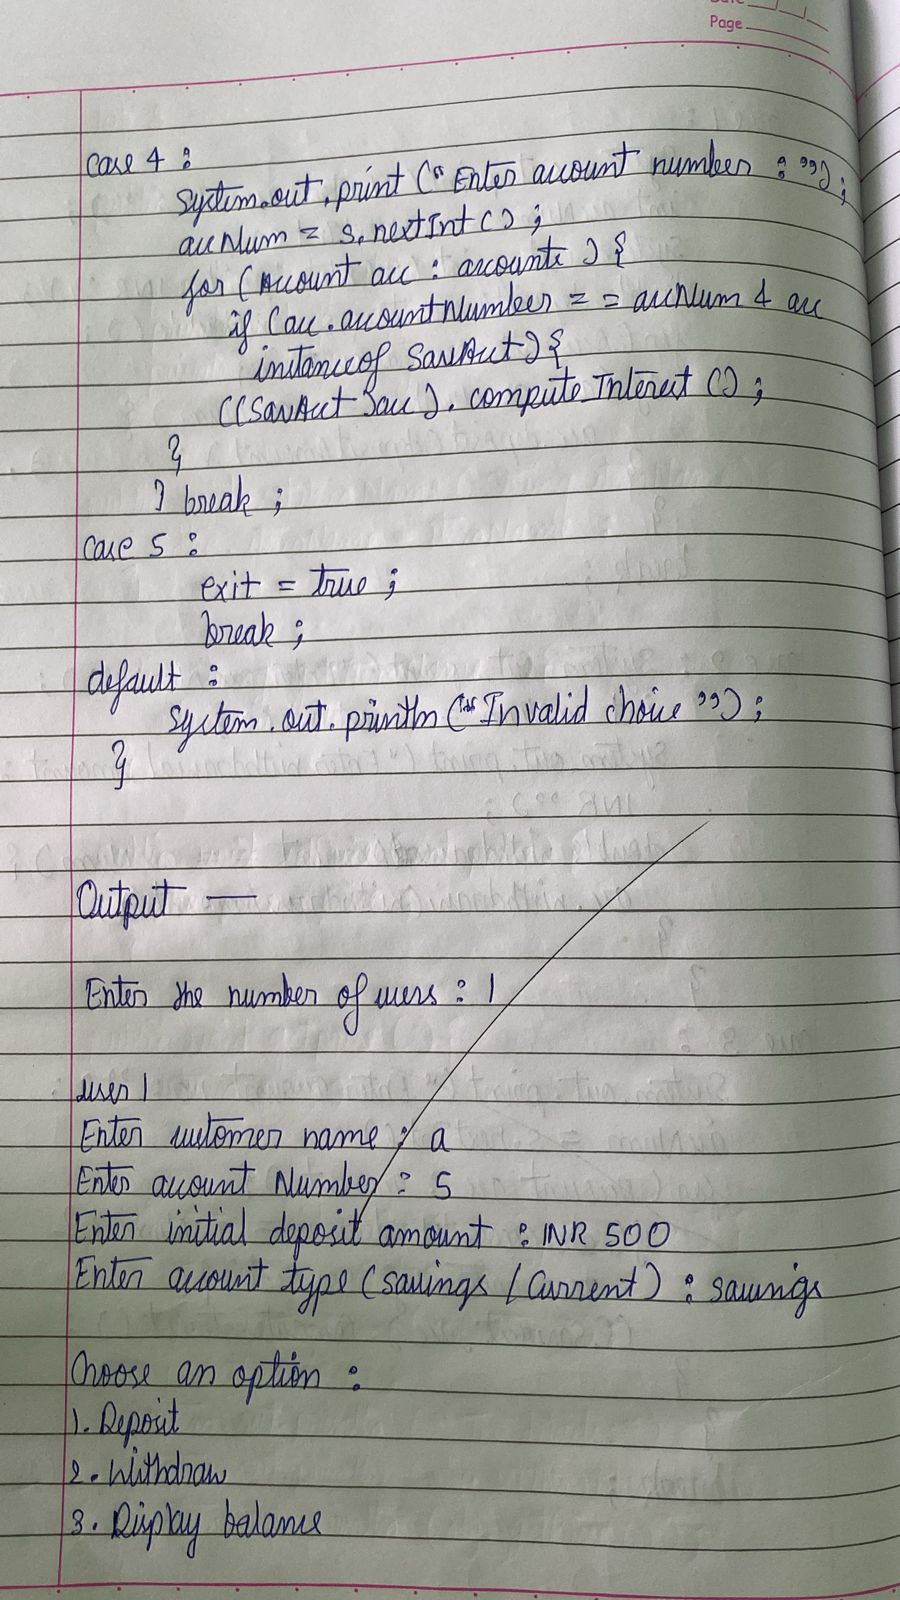 Date
Page
Case 4 :
System.out.print ("Enter account number : ");
accNum = s.nextInt();
for (Account acc : accounts) {
if (acc.accountNumber == accNum & acc
instanceof SavAcct) {
((SavAcct)acc).compute Interest();
}
} break ;
Case 5 :
exit = true ;
break ;
default :
System.out.println ("Invalid choice ");
}
Output —
Enter the number of users : 1
user 1
Enter customer name : a
Enter account Number : 5
Enter initial deposit amount : INR 500
Enter account type (savings / Current) : savings
Choose an option :
1. Deposit
2. Withdraw
3. Display balance